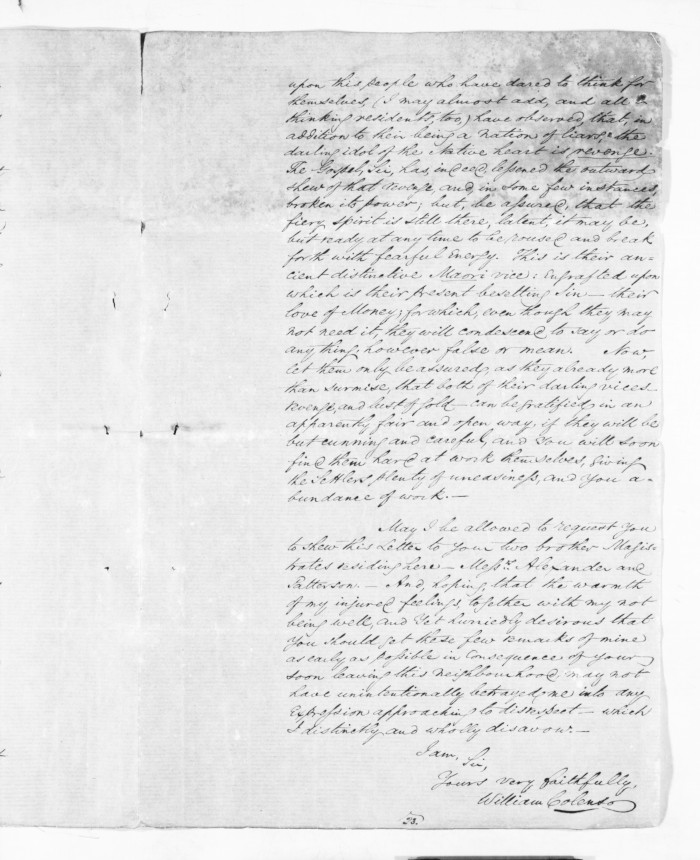 upon this people who have dared to think for
themselves, (I may almost add, and all
thinking residents, too) have observed, that, in
addition to their being a nation of liars, the
darling idol of the Native heart is revenge.
The Gospel, Sir, has, indeed, lessened the outward
shew of that revenge, and, in some few instances,
broken its power; but, be assured, that the
fiery spirit is still there, latent, it may be,
but ready at any time to be roused and break
forth with fearful Energy. This is their an-
cient distinctive Maori vice: Engrafted upon
which is their present besetting Sin — their
love of Money; for which, even though they may
not need it, they will condescend to say or do
any thing, however false or mean. Now
let them only be assured, as they already more
than surmise, that both of their darling vices
revenge, and lust of gold — can be gratified, in an
apparently fair and open way, if they will be
but cunning and careful, and You will soon
find them hard at work themselves, giving
the Settlers plenty of uneasiness, and You a-
bundance of work. —
May I be allowed to request You
to shew this Letter to Your two brother Magis-
trates residing here — Messrs. Alexander and
Patterson. — And, hoping, that the warmth
of my injured feelings, together with my not
being well, and Yet hurriedly desirous that
You should get these few remarks of mine
as early as possible in Consequence of Your
soon leaving this neighbourhood, may not
have unintentionally betrayed me into any
Expression approaching to disrespect — which
I distinctly and wholly disavow. —
I am,
Sir,
Yours very faithfully,
William Colenso